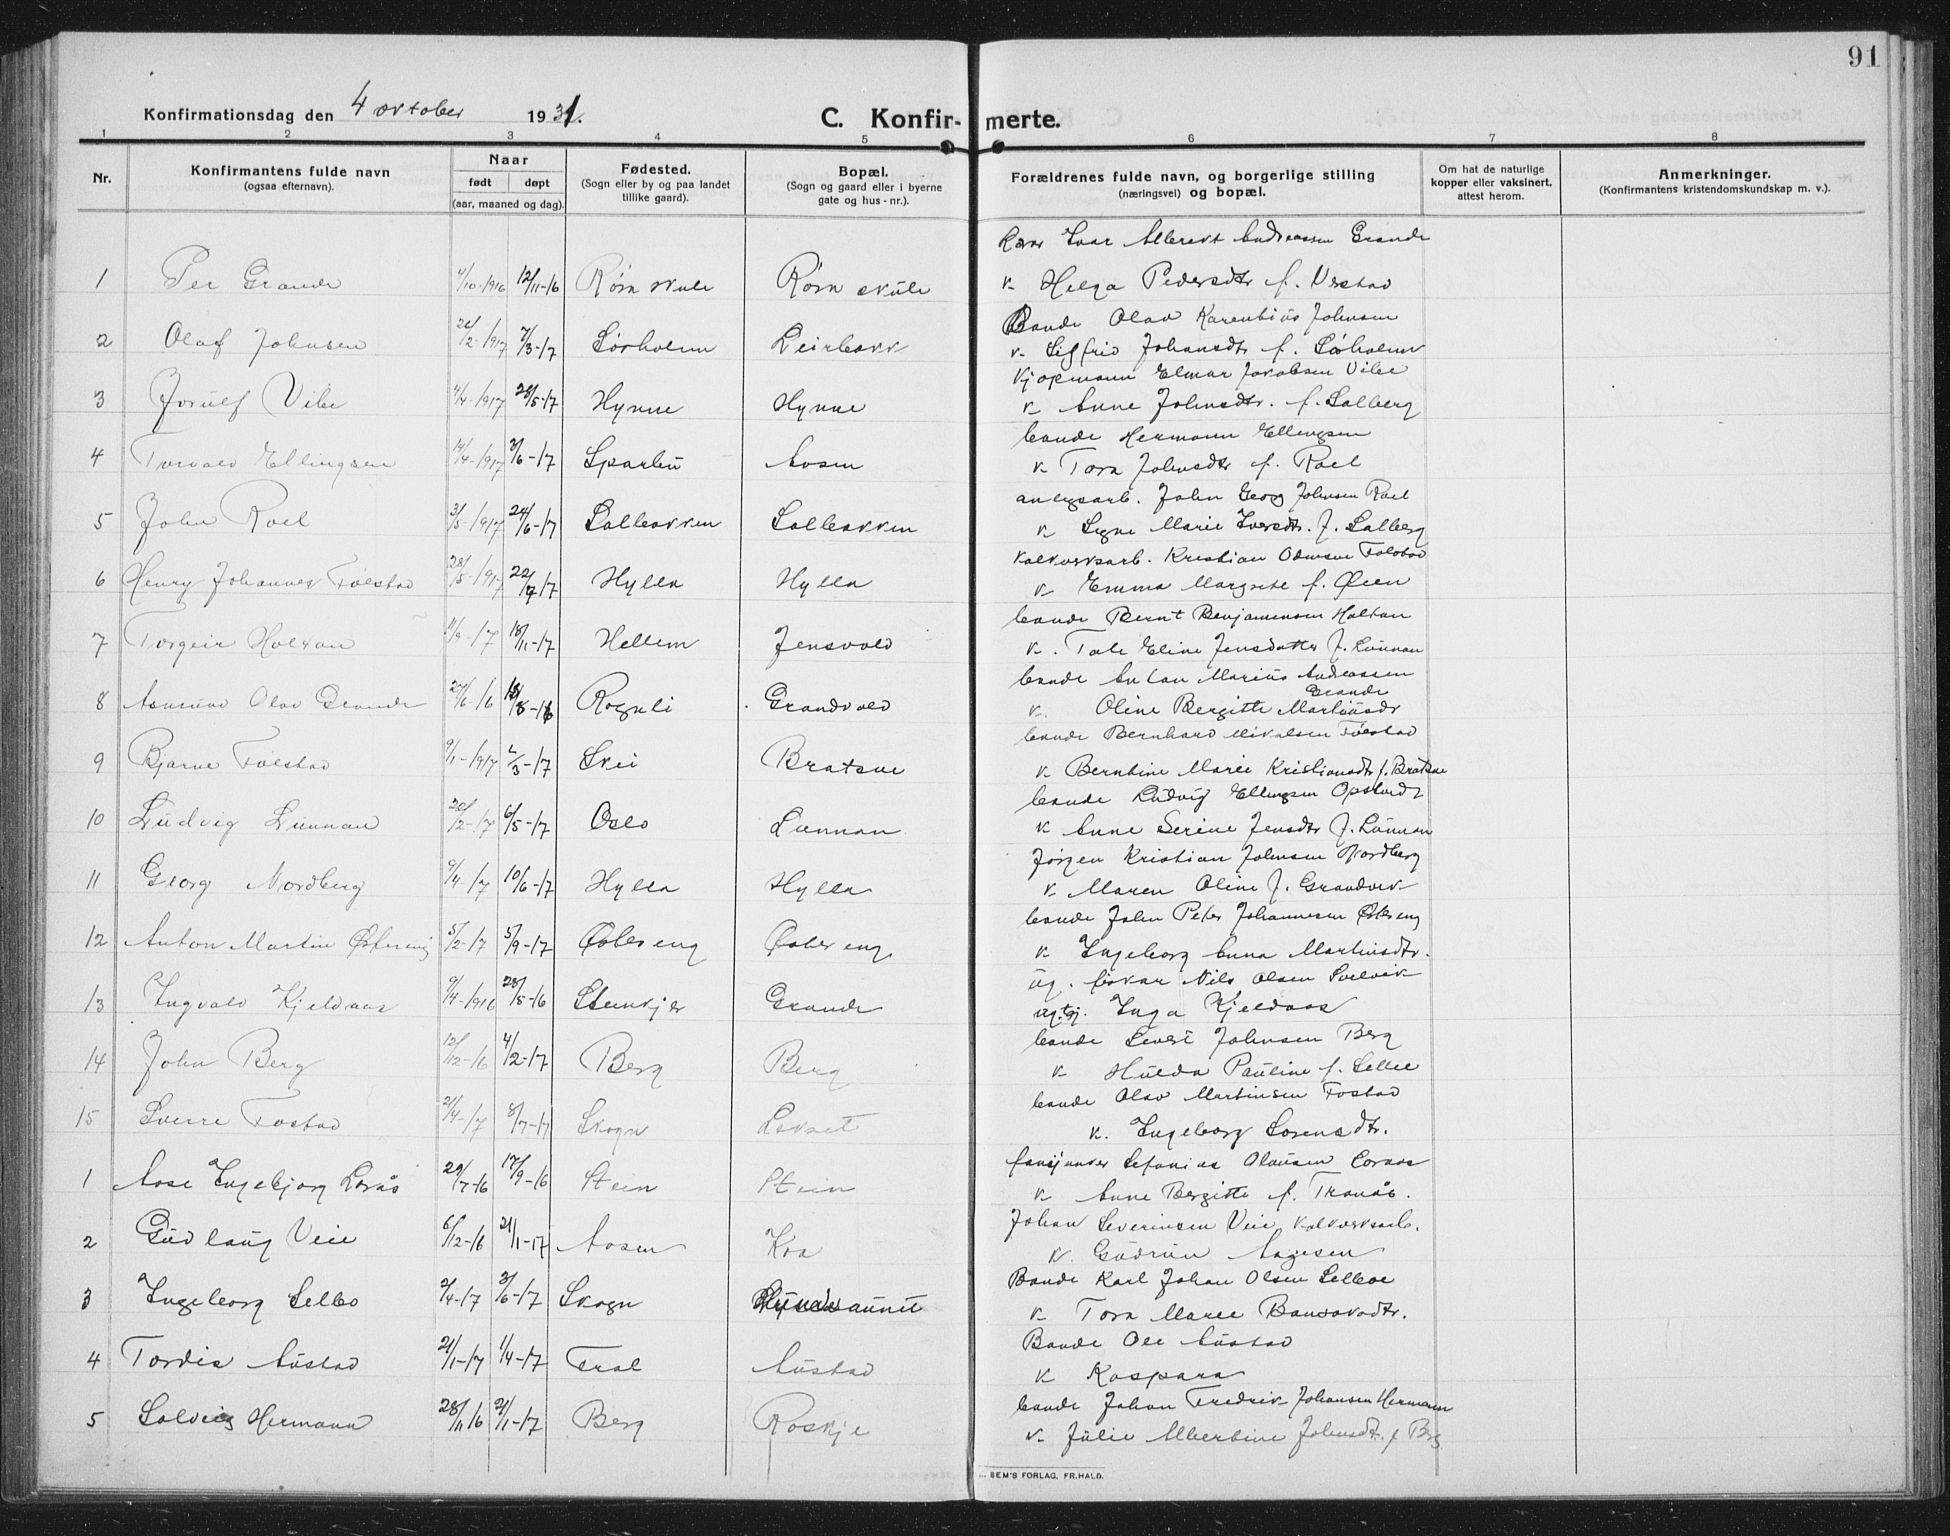 91
Konfirmationsdag den 4 october 1931.
C. Konfir- merte.
1 2 3 4 5 6 7 8
Nr.
Konfirmantens fulde navn
(ogsaa efternavn).
Naar
født døpt
(aar, maaned og dag).
Fødested.
(Sogn eller by og paa landet
tillike gaard).
Bopæl.
(Sogn og gaard eller i byerne
gate og hus-nr.).
Forældrenes fulde navn, og borgerlige stilling
(næringsvei) og bopæl.
Om hat de naturlige
kopper eller vaksinert,
attest herom.
Anmerkninger.
(Konfirmantens kristendomskundskap m. v.).
Ivar Albrekt Andreassen Grande
1 Per Grande 4/10-1916 12/11-16 Røra skule Røra skule k. Helga Pedersdtr f. Vestad
Bonde Olav Karenbius Johnsen
2 Olaf Johnsen 20/2-1917 7/3-17 Sørholm Leirbakk k. Sigfrid Johansdtr f. Sørholm
Kjøpmann Elmar Jakobsen Vibe
3 Jorulf Vibe 4/4-1917 28/5-17 Hynne Hynne k. Anne Johnsdtr. f. Salberg
bonde Hermann Ellingsen
4 Torvald Ellingsen 14/4-1917 3/6-17 Sparbu Aasen k. Tora Johnsdtr f. Roel
anlegsarb. John Georg Johnsen Roel
5 John Roel 3/5-1917 24/6-17 Salbakken Salbakken k. Signe Marie Iversdtr. f. Salberg
kalkverksarb. Kristian Odinsen Følstad
6 Henry Johannes Følstad 28/5-1917 22/7-17 Hylla Hylla k. Emma Margrete f. Øien
bonde Bernt Benjaminsen Holtan
7 Torgeir Holtan 11/9-17 18/11-17 Hellem Jensvold k. Tale Eline Jensdatter f. Lunnan
bonde Anton Marius Andreassen
Grande
8 Asmund Olav Grande 27/6-16 13/8-16 Rognli Grandvold k. Oline Bergitte Martinusdtr
bonde Bernhard Mikalsen Følstad
9 Bjarne Følstad 9/1-1917 2/3-17 Svei Bratsve k. Berntine Marie Kristiansdtr f. Bratsve
bonde Ludvig Ellingsen
10 Ludvig Lunnan 20/2-17 6/5-17 Oslo Lunnan k. Anne Serine Jensdtr f. Lunnan
Jørgen Kristian Johnsen Nordberg
11 Georg Nordberg 9/4-17 10/6-17 Hylla Hylla k. Maren Oline f. Grandvik
bonde John Peter Johannesen Østereng
12 Anton Martin Østereng 5/2-17 5/9-17 Østereng Østereng k. Ingeborg Anna Martinsdtr.
ug. fisker Nils Olsen Svelvik
13 Ingvald Kjeldaas 9/4-1916 28/5-16 Steinkjer Grande ug. tj. Inga Kjeldaas
bonde Severt Johnsen Berg
14 John Berg 12/12-16 4/2-17 Berg Berg k. Hulda Pauline f. Selbe
bonde Olav Martinsen Fostad
15 Sverre Fostad 21/4-17 8/7-17 Skogn k. Ingeborg Sorensdtr.
1 Aase Ingebjørg Loraas 29/7-16 17/9-16 Stein Stein k. Anne Bergitte f. Tranås.
Johan Severinsen Veie kalkverksarb.
2 Gudlaug Veie 6/12-16 21/1-17 Aasen Koa k. Gudrun Aagesen
Bonde Karl Johan Olsen Selboe
3 Ingeborg Selbo 2/4-17 3/6-17 Skogn k. Tora Marie
Bonde Ole Austad
4 Tordis Austad 21/1-17 1/4-17 Frol Austad k. Kaspara
bonde Johan Fredrik Johansen Hermann
5 Solveig Hermann 28/11 16 21/1-17 Berg Roskje k. Julie Albertine Johnsdtr. f Berg
SEM'S FORLAG, FR.HALD.